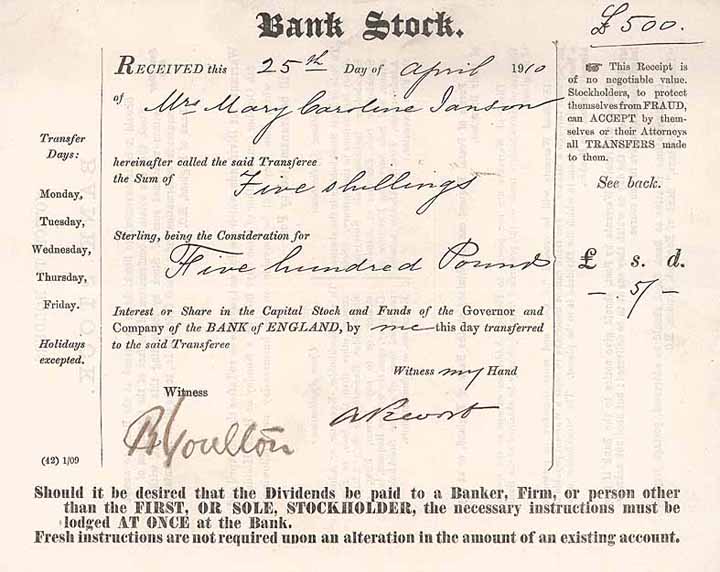 Bank Stock.
£500.
RECEIVED this 25th Day of April 1910
of Mrs Mary Caroline Janson
hereinafter called the said Transferee
the Sum of Five shillings
Sterling, being the Consideration for
Five hundred Pounds
Interest or Share in the Capital Stock and Funds of the Governor and
Company of the BANK of ENGLAND, by me this day transferred
to the said Transferee
Witness my Hand
Witness
(42) 1/09
Transfer
Days:
Monday,
Tuesday,
Wednesday,
Thursday,
Friday.
Holidays
excepted.
☞ This Receipt is
of no negotiable value.
Stockholders, to protect
themselves from FRAUD,
can ACCEPT by them-
selves or their Attorneys
all TRANSFERS made
to them.
See back.
£ s. d.
– 5/–
Should it be desired that the Dividends be paid to a Banker, Firm, or person other
than the FIRST, OR SOLE, STOCKHOLDER, the necessary instructions must be
lodged AT ONCE at the Bank.
Fresh instructions are not required upon an alteration in the amount of an existing account.